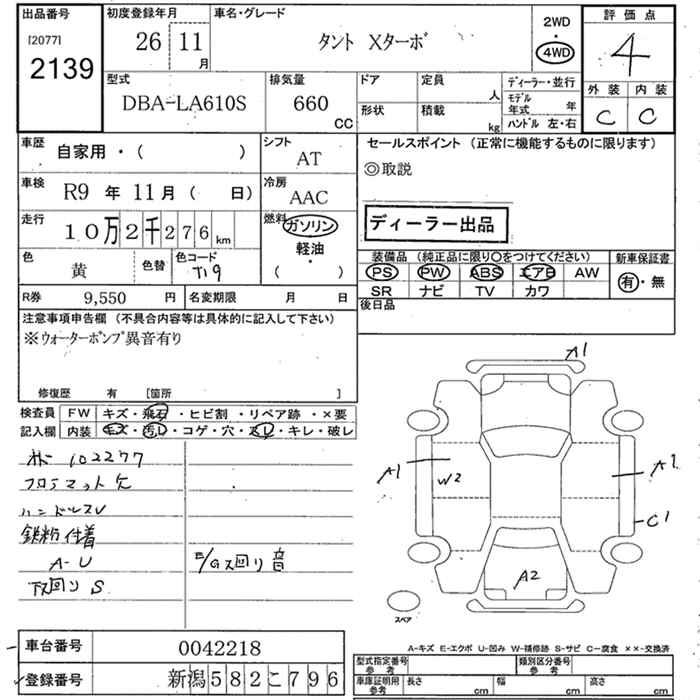 出品番号
[2077]
2139
初度登録年月
26 11月
車名・グレード
タント Xターボ
2WD
4WD
評価点
4
外装 内装
C C
型式
DBA-LA610S
排気量
660
CC
ドア
定員
人
形状
積載
kg
ディーラー・並行
モデル年式 年
ハンドル 左・右
車歴
自家用・( )
シフト
AT
車検
R9 年 11月 ( 日)
冷房
AAC
走行
10万2千276km
燃料
ガソリン
軽油・
( )
色
黄
色替
色コード
T19
R券 9,550 円
名変期限 月 日
セールスポイント (正常に機能するものに限ります)
◎取説
ディーラー出品
装備品 (純正品に限り○をつけてください)
PS PW ABS エアB AW
SR ナビ TV カワ
新車保証書
有・無
後日品
注意事項申告欄 (不具合内容等は具体的に記入して下さい)
※ウォーターポンプ異音有り
修復歴 有 [箇所 ]
検査員記入欄
FW キズ・飛石・ヒビ割・リペア跡・×要
内装 キズ・汚レ・コゲ・穴・スレ・キレ・破レ
102277
フロアマット欠
ハンドルスレ
鉄粉付着
A-U
下回り S
E/Gス回り音
A1
A1
W2
A2
C1
A2
スペア
A-キズ E-エクボ U-凹み W-補修跡 S-サビ C-腐食 ××-交換済
車台番号 0042218
登録番号 新潟582こ796
型式指定番号 参考
類別区分番号 参考
車庫証明用 参考
長さ cm
幅 cm
高さ cm